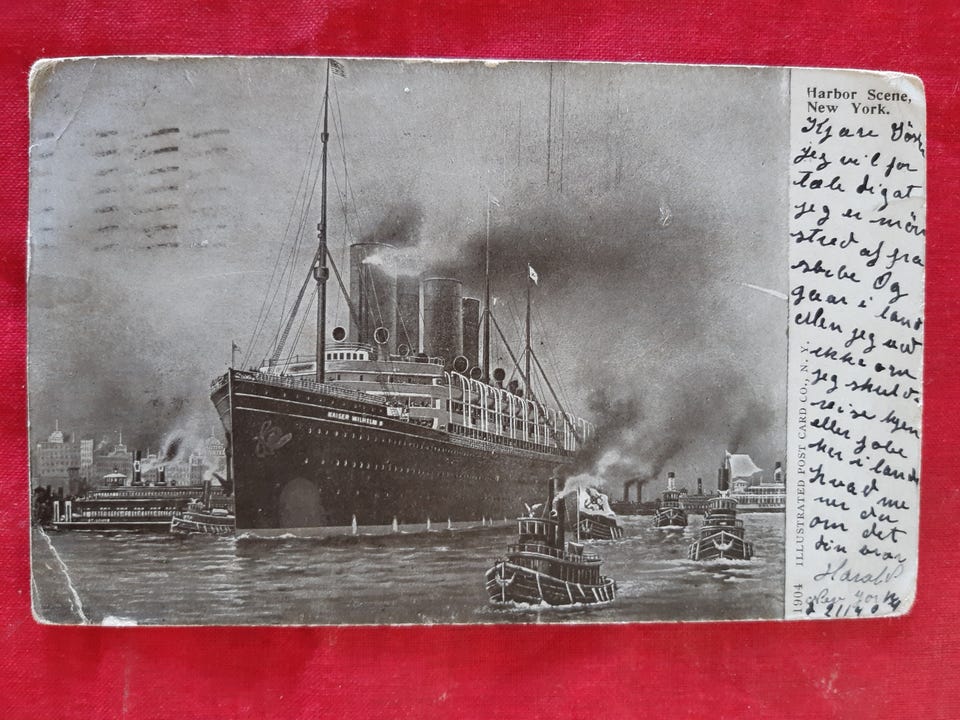 Harbor Scene,
New York.
Kjære
jeg vil for
tæle dig at
jeg er møn
stred af fra
skibe Og
gaar i land
Men jeg ved
ikke om
jeg skulde
reise hjem
eller jobe
her i land
hvad me
ner du
om det
din bror
Harald
New York
KAISER WILHELM II
1904 ILLUSTRATED POST CARD CO., N. Y.